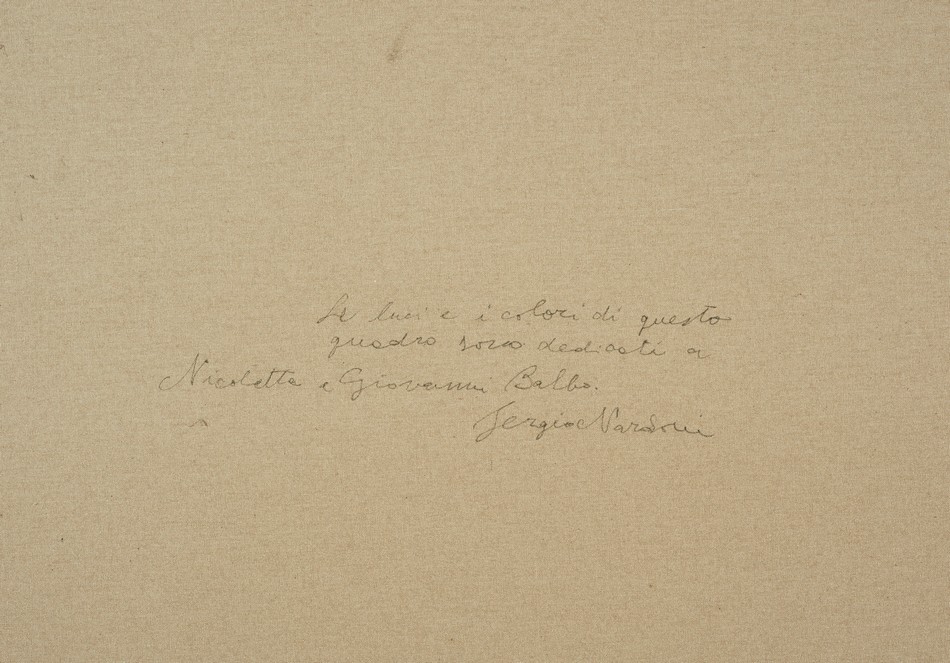 Le luci e i colori di questo
quadro sono dedicati a
Nicoletta e Giovanni Balbo.
Sergio Nardoni